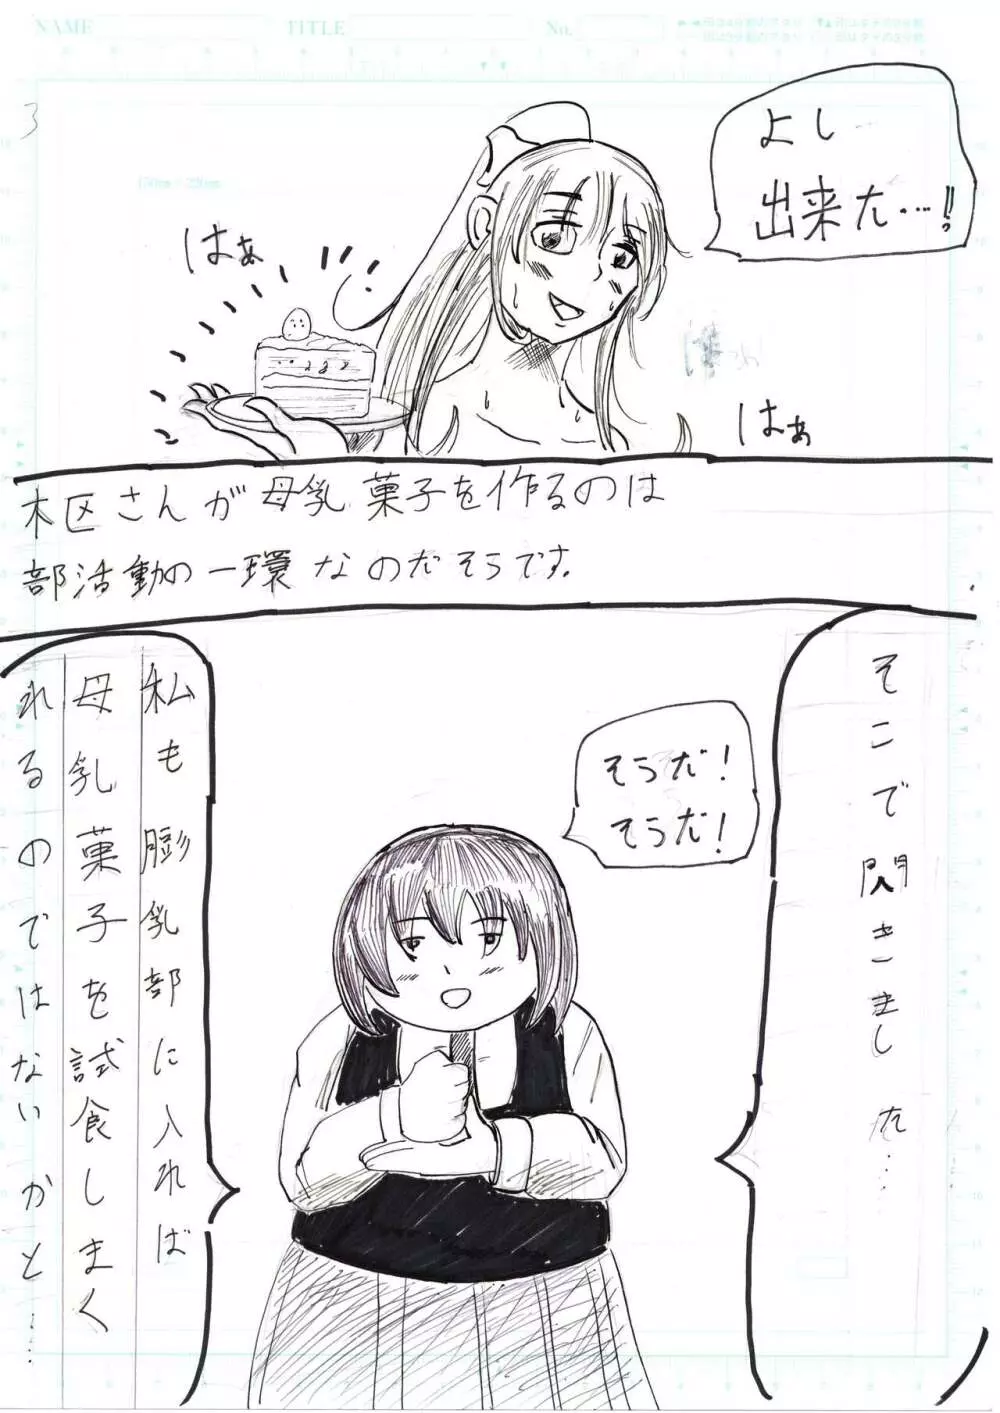 NAME
TITLE
No.
3
よし
出来た…!!
はぁ、
はぁ
木区さんが母乳菓子を作るのは
部活動の一環なのだそうです。
そこで閃きました……
そうだ!
そうだ!
私も膨乳部に入れば
母乳菓子を試食しまく
れるのではないかと……